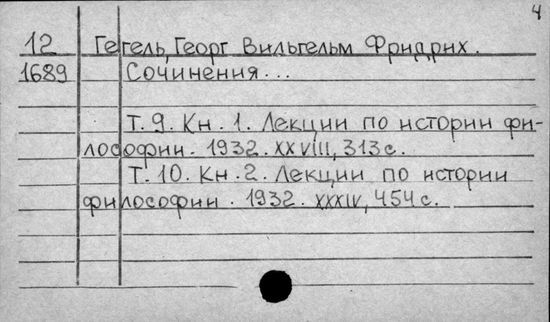 4
12 Гегель, Георг Вильгельм Фридрих.
1689 Сочинения...
Т. 9. Кн. 1. Лекции по истории фи-
лософии. 1932. XXVIII, 313 с.
Т. 10. Кн. 2. Лекции по истории
философии. 1932. XXXIV, 454 с.